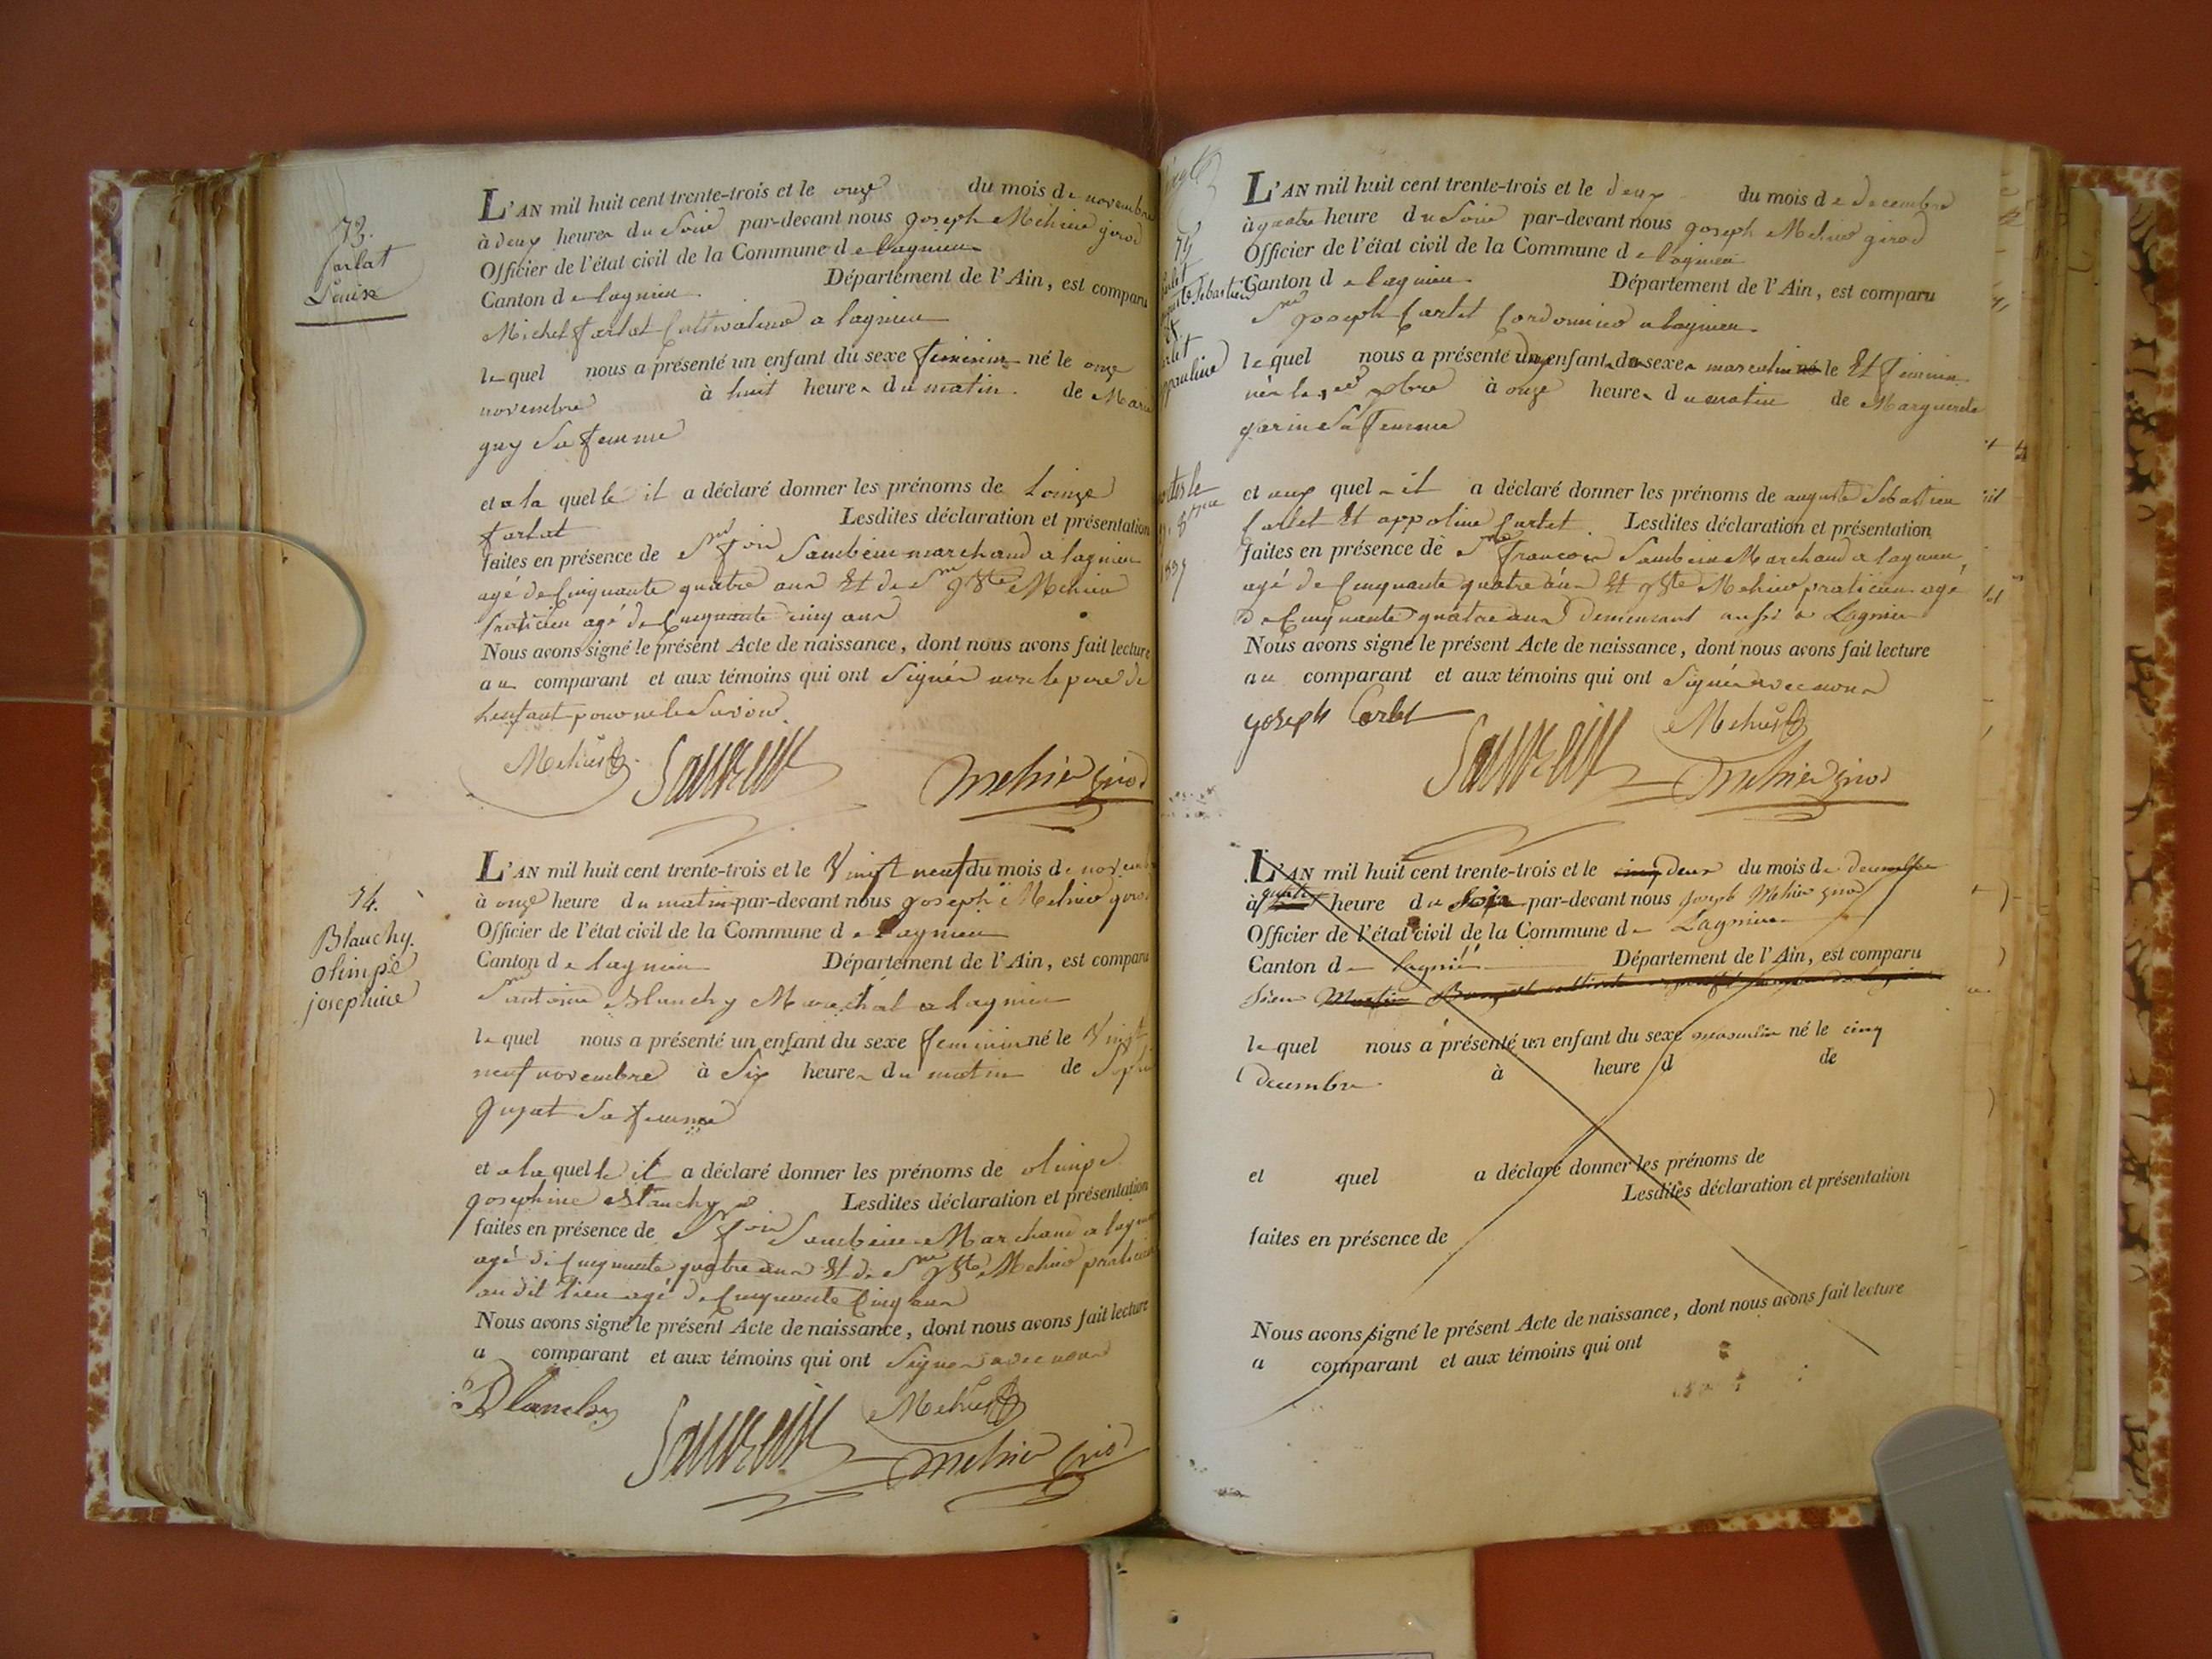 73.
farlat
Louise
L'AN mil huit cent trente-trois et le onze du mois de novembre
à deux heures du Soir par-devant nous joseph Mehier girod
Officier de l'état civil de la Commune de lagnieu
Canton de lagnieu Département de l'Ain, est comparu
Michel farlat Cultivateur a lagnieu
lequel nous a présenté un enfant du sexe feminin né le onze
novembre à huit heures du matin. de Marie
guy Sa femme
et a la quelle il a déclaré donner les prénoms de Louize
farlat Lesdites déclaration et présentation
faites en présence de Sr fois Saubein marchand a lagnieu
agé de Cinquante quatre ans Et de Sr jBte Mehier
Praticien agé de Cinquante cinq ans
Nous avons signé le présent Acte de naissance, dont nous avons fait lecture
au comparant et aux témoins qui ont Signés non le pere de
Lenfant pour ne le Savoir
Mehier
Mehier girod
74.
Blanchy.
olimpe
josephine
L'AN mil huit cent trente-trois et le Vingt neuf du mois de novembre
à onze heure du matin par-devant nous joseph Mehier girod
Officier de l'état civil de la Commune de Lagnieu
Canton de lagnieu Département de l'Ain, est comparu
Sr antoine Blanchy Marechal a lagnieu
lequel nous a présenté un enfant du sexe feminin né le Vingt
neuf novembre à Six heures du matin de
Sa femme
et a la quelle il a déclaré donner les prénoms de olimpe
josephine Blanchy Lesdites déclaration et présentation
faites en présence de Sr fois Saubein Marchand a
agé de Cinquante quatre ans Et de Sr jBte Mehier praticien
au dit lieu agé de Cinquante Cinq ans
Nous avons signé le présent Acte de naissance, dont nous avons fait lecture
a comparant et aux témoins qui ont Signés avec nous
Blanchy
Mehier
Mehier girod
75
L'AN mil huit cent trente-trois et le deux du mois de decembre
à quatre heure du Soir par-devant nous joseph Mehier girod
Officier de l'état civil de la Commune de lagnieu
Canton de lagnieu. Département de l'Ain, est comparu
Sr joseph Cartet Cordonnier a lagnieu
lequel nous a présenté enfant sexe masculin né le Et feminin
nés le à onze heures du matin de Marguerite
garin Sa femme
et aux quels il a déclaré donner les prénoms de auguste Sebastien
Cartet Et appoline Cartet Lesdites déclaration et présentation
faites en présence de Sr francois Saubein Marchand a lagnieu,
agé de Cinquante quatre ans Et jBte Mehier praticien agé
de Cinquante quatre ans demeurant aussi à Lagnieu
Nous avons signé le présent Acte de naissance, dont nous avons fait lecture
au comparant et aux témoins qui ont Signés avec nous
joseph Cartet
Mehier
Mehier girod
L'AN mil huit cent trente-trois et le cinq deux du mois de decembre
à quatre heure du Soir par-devant nous joseph Mehier girod
Officier de l'état civil de la Commune de Lagnieu
Canton de lagnieu Département de l'Ain, est comparu
Sieur
lequel nous a présenté un enfant du sexe masculin né le cinq
decembre à heure d de
et quel a déclaré donner les prénoms de
Lesdites déclaration et présentation
faites en présence de
Nous avons signé le présent Acte de naissance, dont nous avons fait lecture
a comparant et aux témoins qui ont